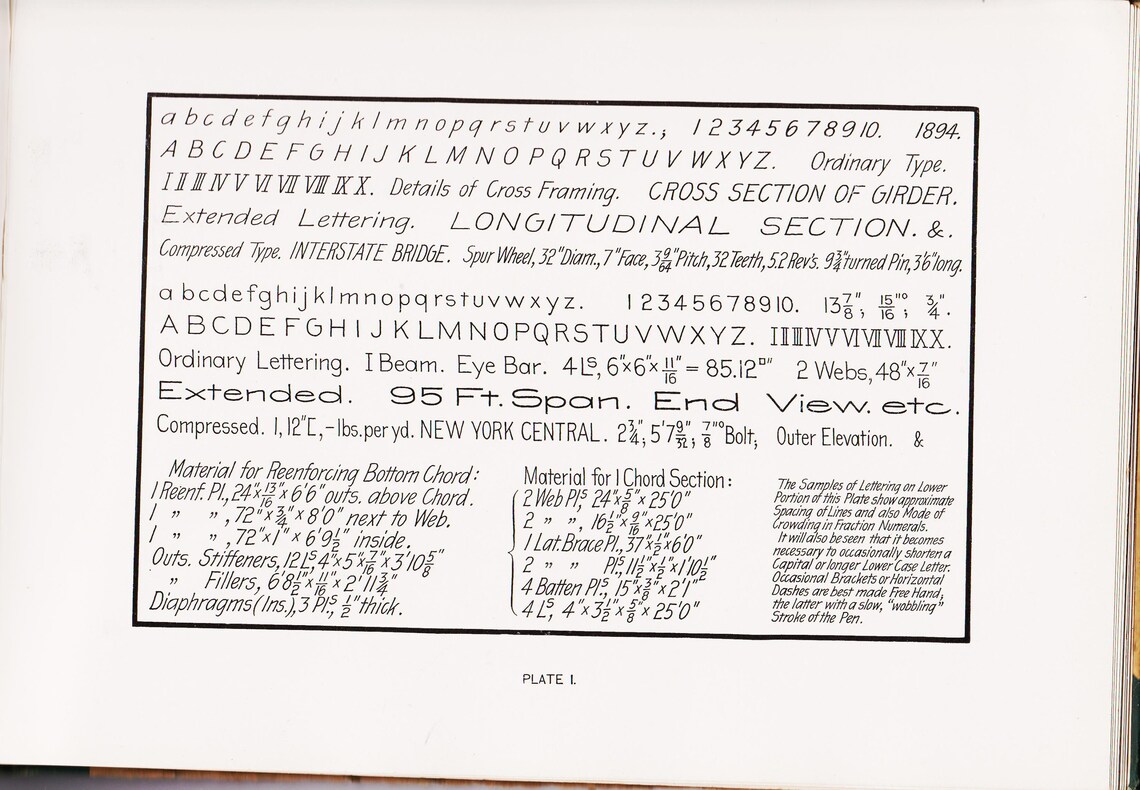 a b c d e f g h i j k l m n o p q r s t u v w x y z . ; 1 2 3 4 5 6 7 8 9 10. 1894.
A B C D E F G H I J K L M N O P Q R S T U V W X Y Z. Ordinary Type.
I II III IV V VI VII VIII IX X. Details of Cross Framing. CROSS SECTION OF GIRDER.
Extended Lettering. LONGITUDINAL SECTION. &.
Compressed Type. INTERSTATE BRIDGE. Spur Wheel, 32" Diam., 7" Face, 3 9/64" Pitch, 32 Teeth, 5.2 Rev's. 9 3/4" turned Pin, 3'6" long.
a b c d e f g h i j k l m n o p q r s t u v w x y z. 1 2 3 4 5 6 7 8 9 10. 13 7/8"; 15/16"°; 3/4".
A B C D E F G H I J K L M N O P Q R S T U V W X Y Z. I II III IV V VI VII VIII IX X.
Ordinary Lettering. I Beam. Eye Bar. 4 Ls, 6"x6"x 11/16" = 85.12□" 2 Webs, 48"x 7/16"
Extended. 95 Ft. Span. End View. etc.
Compressed. 1, 12"[, – lbs. per yd. NEW YORK CENTRAL. 2 3/4"; 5'7 9/32"; 7/8"° Bolt; Outer Elevation. &
Material for Reenforcing Bottom Chord:
1 Reenf. Pl., 24"x 13/16" x 6'6" outs. above Chord.
1 " " , 72"x 3/4" x 8'0" next to Web.
1 " " , 72"x 1" x 6'9 1/2" inside.
Outs. Stiffeners, 12 Ls, 4"x5"x 7/16" x 3'10 5/8"
" Fillers, 6'8 1/2"x 11/16" x 2'11 3/4"
Diaphragms (Ins.), 3 Pls., 1/2" thick.
Material for 1 Chord Section:
2 Web Pls. 24"x 5/8" x 25'0"
2 " " , 16 1/2"x 9/16" x25'0"
1 Lat. Brace Pl., 37"x 1/2"x6'0"
2 " " Pls. 11 1/2"x 1/2"x1'10 1/2"
4 Batten Pls., 15"x 3/8"x 2'1"
4 Ls, 4"x3 1/2"x 5/8"x 25'0"
The Samples of Lettering on Lower
Portion of this Plate show approximate
Spacing of Lines and also Mode of
Crowding in Fraction Numerals.
It will also be seen that it becomes
necessary to occasionally shorten a
Capital or longer Lower Case Letter.
Occasional Brackets or Horizontal
Dashes are best made Free Hand;
the latter with a slow, "wobbling"
Stroke of the Pen.
PLATE I.